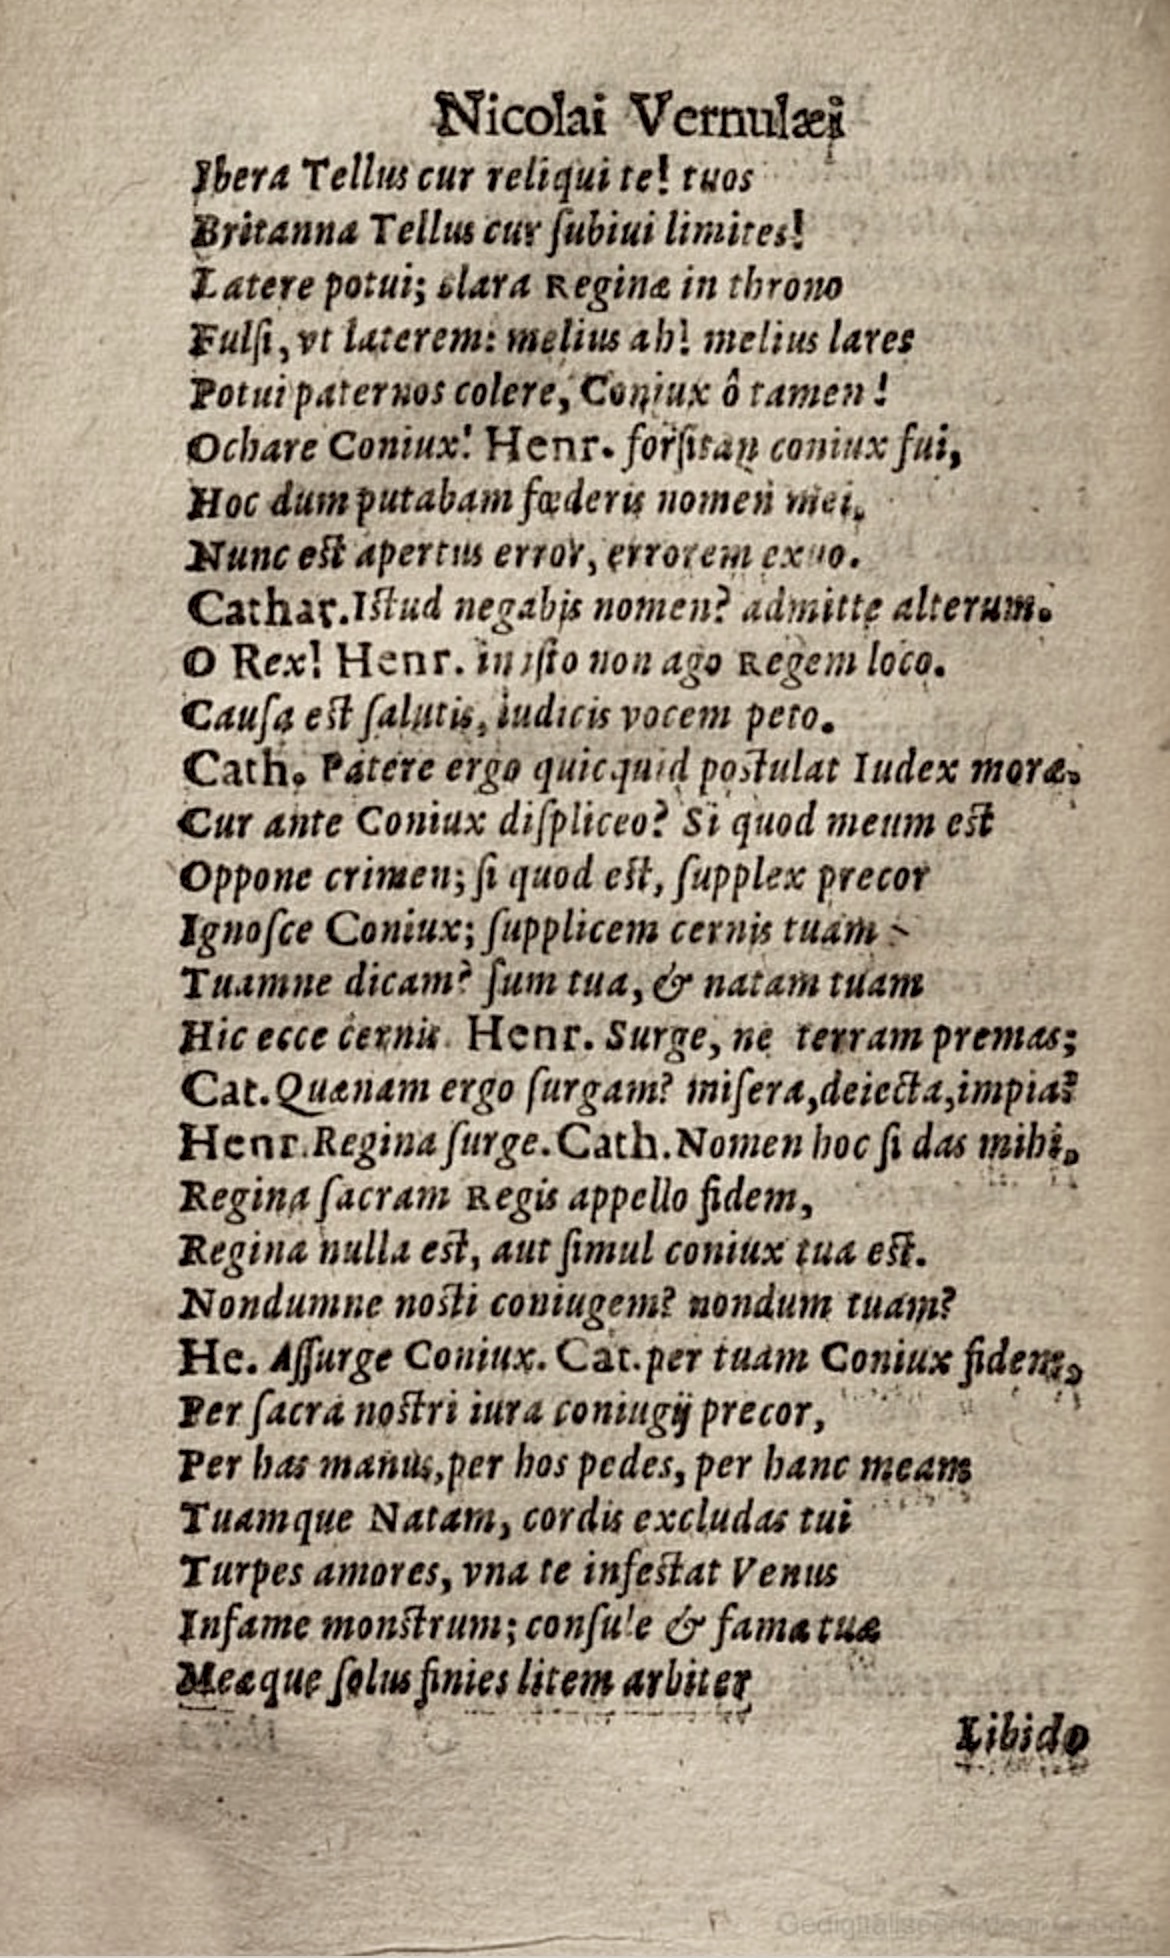 Nicolai Vernulæi
Ibera Tellus cur reliqui te! tuos
Britanna Tellus cur ſubiui limites!
Latere potui; clara Reginæ in throno
Fulſi, vt laterem: melius ah! melius lares
Potui paternos colere, Coniux ô tamen!
O chare Coniux! Henr. forſitan coniux fui,
Hoc dum putabam fœderis nomen mei.
Nunc eſt apertus error, errorem exuo.
Cathar. Iſtud negabis nomen? admitte alterum.
O Rex! Henr. in iſto non ago Regem loco.
Cauſa eſt ſalutis, iudicis vocem peto.
Cath. Patere ergo quicquid poſtulat Iudex moræ.
Cur ante Coniux diſpliceo? Si quod meum eſt
Oppone crimen; ſi quod eſt, ſupplex precor
Ignoſce Coniux; ſupplicem cernis tuam
Tuamne dicam? ſum tua, & natam tuam
Hic ecce cernis. Henr. Surge, ne terram premas;
Cat. Quænam ergo ſurgam? miſera, deiecta, impia?
Henr. Regina ſurge. Cath. Nomen hoc ſi das mihi,
Regina ſacram Regis appello fidem,
Regina nulla eſt, aut ſimul coniux tua eſt.
Nondumne noſti coniugem? nondum tuam?
He. Aſſurge Coniux. Cat. per tuam Coniux fidem,
Per ſacra noſtri iura coniugij precor,
Per has manus, per hos pedes, per hanc meam
Tuamque Natam, cordis excludas tui
Turpes amores, vna te infeſtat Venus
Infame monſtrum; conſule & famæ tuæ
Meæque ſolus finies litem arbiter
Libido
Gedigitaliseerd door Google